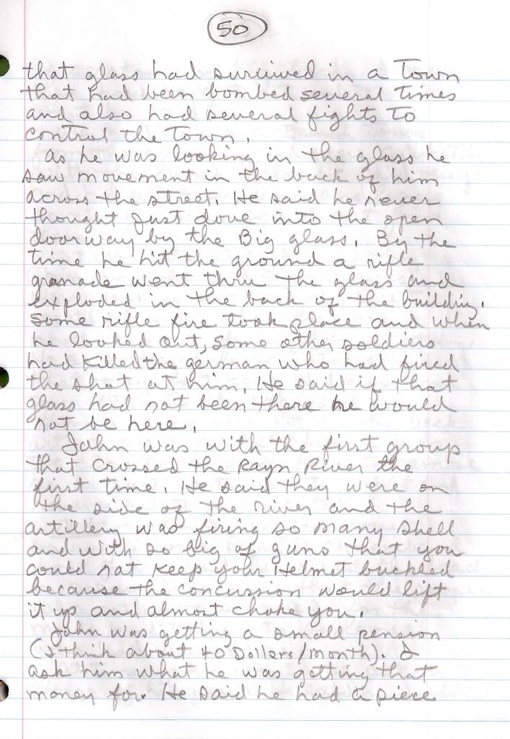 50
that glass had survived in a Town
that had been bombed several times
and also had several fights to
control the Town.
as he was looking in the glass he
saw movement in the back of him
across the street. He said he never
thought just dove into the open
doorway by the Big glass. By the
time he hit the ground a rifle
granade went thru the glass and
exploded in the back of the building.
Some rifle fire took place and when
he looked out, some other soldiers
had killed the german who had fired
the shot at him. He said if that
glass had not been there he would
not be here.
John was with the first group
that crossed the Rayn River the
first time. He said they were on
the side of the river and the
artillery was firing so many shell
and with so big of guns that you
could not keep your Helmet buckled
because the concussion would lift
it up and almost choke you.
John was getting a small pension
(I think about 40 Dollars/month). I
ask him what he was getting that
money for. He said he had a piece